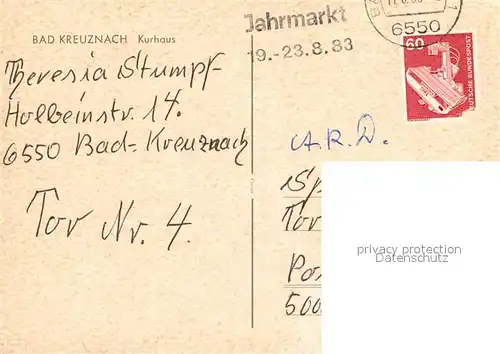 BAD KREUZNACH Kurhaus
Jahrmarkt
19.-23.8.83
6550
60
DEUTSCHE BUNDESPOST
Theresia Stumpf
Holbeinstr. 14.
6550 Bad-Kreuznach
Tor Nr. 4.
A.R.D.
Sp
Tor
Pos
500
privacy protection
Datenschutz